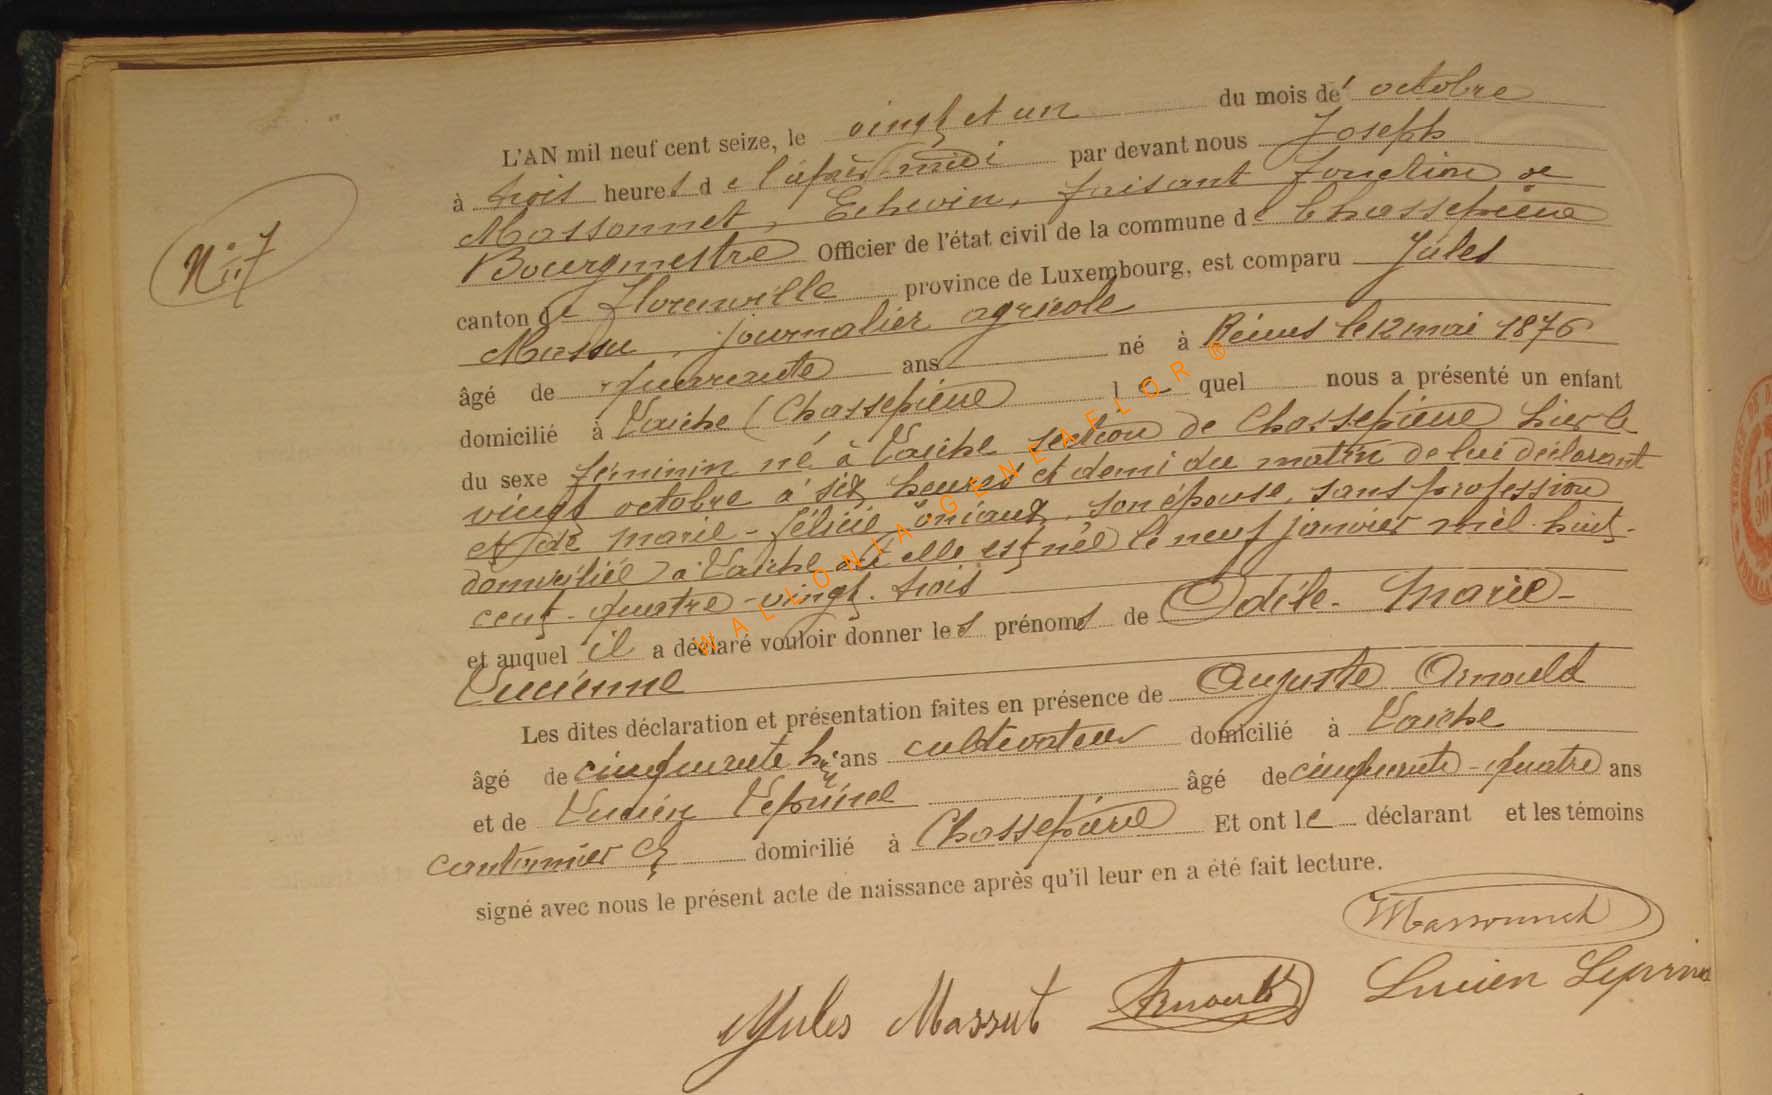 N° 7
L'AN mil neuf cent seize, le vingt et un du mois de octobre
à trois heures de l'après midi par devant nous Joseph
Massonnet, Echevin, faisant fonction de
Bourgmestre Officier de l'état civil de la commune de Chassepierre
canton de Florenville province de Luxembourg, est comparu Jules
Massu, journalier agricole
âgé de quarante ans né à Reims le 12 mai 1876
domicilié à Laiche (Chassepierre lequel nous a présenté un enfant
du sexe féminin né à Laiche section de Chassepierre hier le
vingt octobre à six heures et demi du matin de lui déclarant
et de Marie-Félicie son épouse, sans profession
domiciliée à Laiche où elle est née le neuf janvier mil-huit-
cent-quatre-vingt-trois
et auquel il a déclaré vouloir donner les prénoms de Odile-Marie-
Lucienne
Les dites déclaration et présentation faites en présence de Auguste Arnould
âgé de cinquante ans cultivateur domicilié à Laiche
et de Lucien Lepinel âgé de cinquante-quatre ans
cantonnier domicilié à Chassepierre Et ont le déclarant et les témoins
signé avec nous le présent acte de naissance après qu'il leur en a été fait lecture.
Massonnet
Jules Massut Arnould Lucien
WALLONIA-GENEAFLOR ®